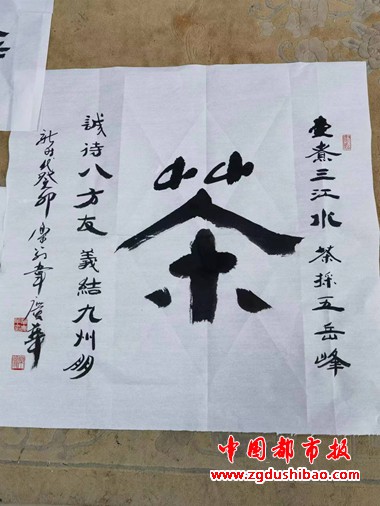 壺煮三江水 茶採五岳峰
茶
誠待八方友 義結九州朋
新时代癸卯 韋 華
中国都市报
www.zgdushibao.com